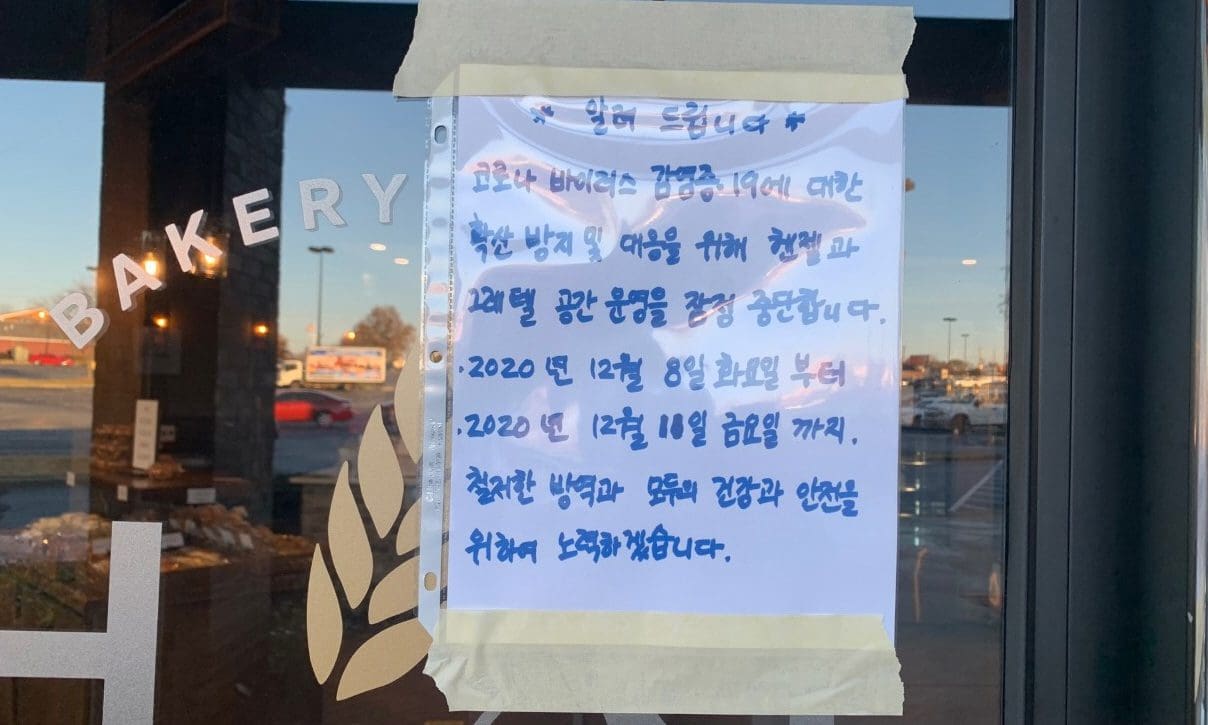 BAKERY
* 알려 드립니다 *
코로나 바이러스 감염증 19에 대한
확산 방지 및 대응을 위해 헨젤과
그레텔 공간 운영을 잠정 중단합니다.
·2020년 12월 8일 화요일 부터
·2020년 12월 11일 금요일 까지.
철저한 방역과 모두의 건강과 안전을
위하여 노력하겠습니다.
H